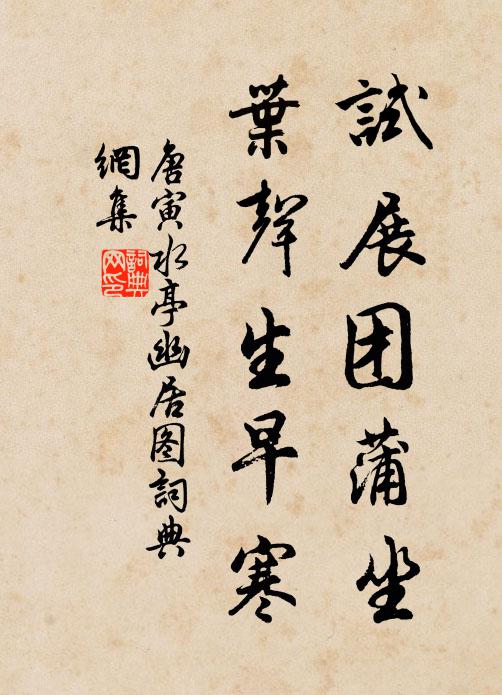 試展团蒲坐
葉聲生早寒
唐寅水亭幽居图詞典
網集
詞典
网印